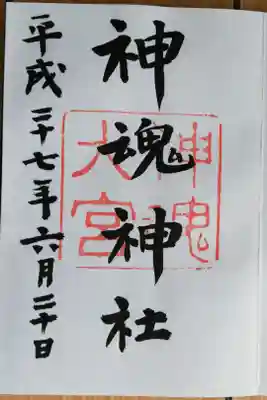 神魂神社
平成二十七年六月二十日
神魂
大宮